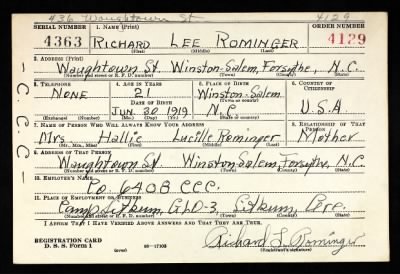 436 Waughtown St 4129
SERIAL NUMBER 1. NAME (Print) ORDER NUMBER
4363 RICHARD LEE ROMINGER 4129
(First) (Middle) (Last)
2. ADDRESS (Print)
Waughtown St. Winston-Salem, Forsythe, N.C.
(Number and street or R. F. D. number) (Town) (County) (State)
3. TELEPHONE 4. AGE IN YEARS 5. PLACE OF BIRTH 6. COUNTRY OF CITIZENSHIP
NONE 21 Winston-Salem
DATE OF BIRTH (Town or county)
Jun 30 1919 N.C. U.S.A
(Exchange) (Number) (Mo.) (Day) (Yr.) (State or country)
7. NAME OF PERSON WHO WILL ALWAYS KNOW YOUR ADDRESS 8. RELATIONSHIP OF THAT PERSON
Mrs Hallie Lucille Rominger Mother
(Mr., Mrs., Miss) (First) (Middle) (Last)
9. ADDRESS OF THAT PERSON
Waughtown St. Winston-Salem, Forsythe, N.C.
(Number and street or R. F. D. number) (Town) (County) (State)
10. EMPLOYER'S NAME
Co. 6408 CCC.
11. PLACE OF EMPLOYMENT OR BUSINESS
Camp Sitkum, GLO-3, Sitkum, Ore.
(Number and street or R. F. D. number) (Town) (County) (State)
I AFFIRM THAT I HAVE VERIFIED ABOVE ANSWERS AND THAT THEY ARE TRUE.
REGISTRATION CARD
D. S. S. FORM 1 (over) 16-17105 Richard L. Rominger
(Registrant's signature)